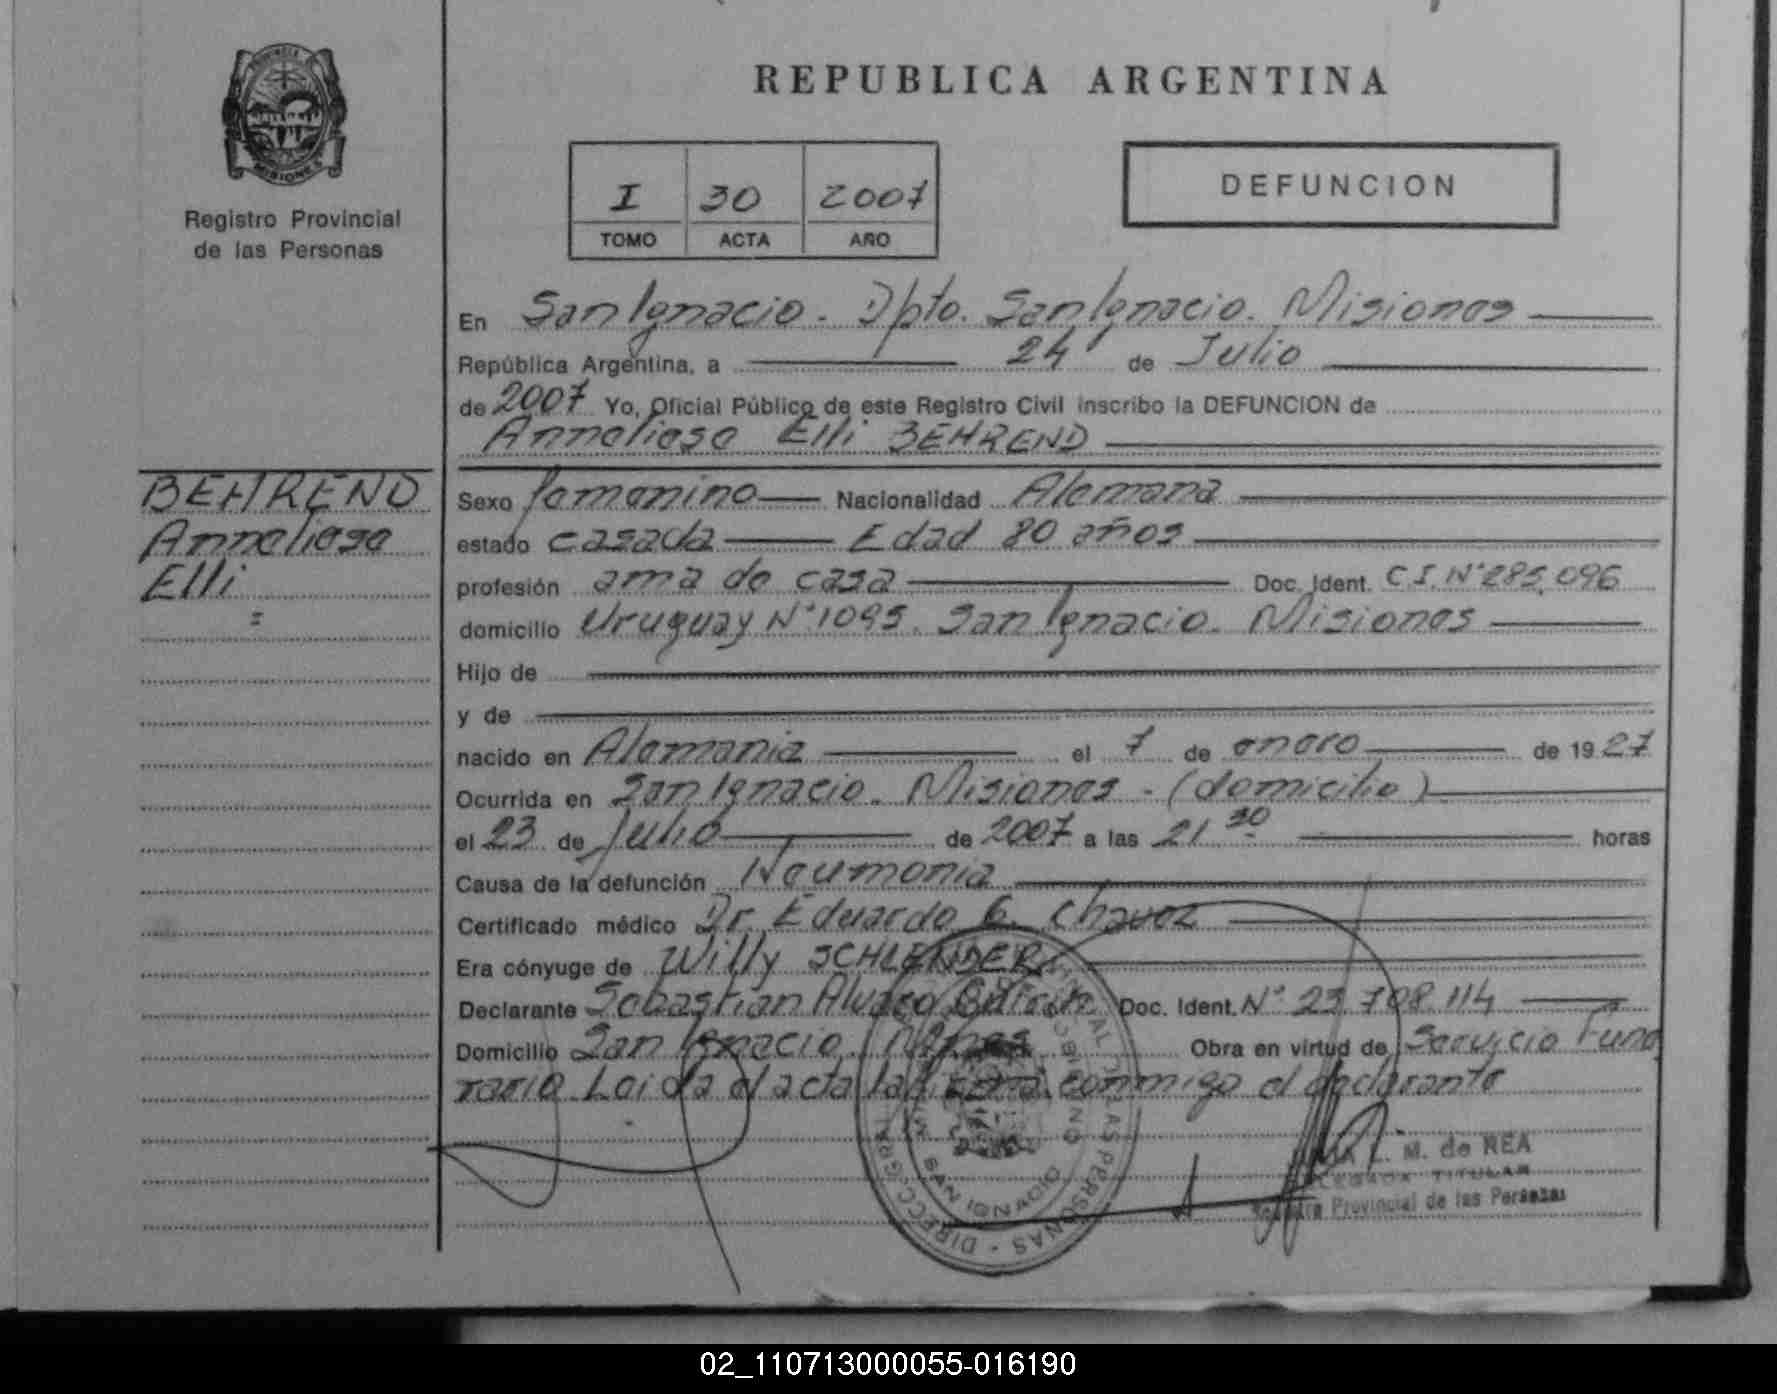 PROVINCIA D
MISIONES
Registro Provincial
de las Personas
REPUBLICA ARGENTINA
I 30 2007
TOMO ACTA AÑO
DEFUNCION
En San Ignacio. Dpto. San Ignacio. Misiones
República Argentina, a 24 de Julio
de 2007 Yo, Oficial Público de este Registro Civil inscribo la DEFUNCION de
Anneliese Elli BEHREND
BEHREND
Anneliese
Elli
=
Sexo femenino Nacionalidad Alemana
estado casada Edad 80 años
profesión ama de casa Doc. Ident. C.I. N° 285.096
domicilio Uruguay N° 1095. San Ignacio. Misiones
Hijo de
y de
nacido en Alemania el 7 de enero de 1927
Ocurrida en San Ignacio. Misiones - (domicilio)
el 23 de Julio de 2007 a las 21 30 horas
Causa de la defunción Neumonia
Certificado médico Dr. Eduardo G. Chavez
Era cónyuge de Willy SCHLENDER
Declarante Sebastian Alvaro Doc. Ident. N° 23.708.114
Domicilio San Ignacio. Mnes Obra en virtud de Servicio Fune
rario Leida el acta la firma conmigo el declarante
L. M. de REA
DELEGADA TITULAR
Registro Provincial de las Personas
DIRECC. GRAL. PROVINCIAL DE LAS PERSONAS
SAN IGNACIO
02_110713000055-016190